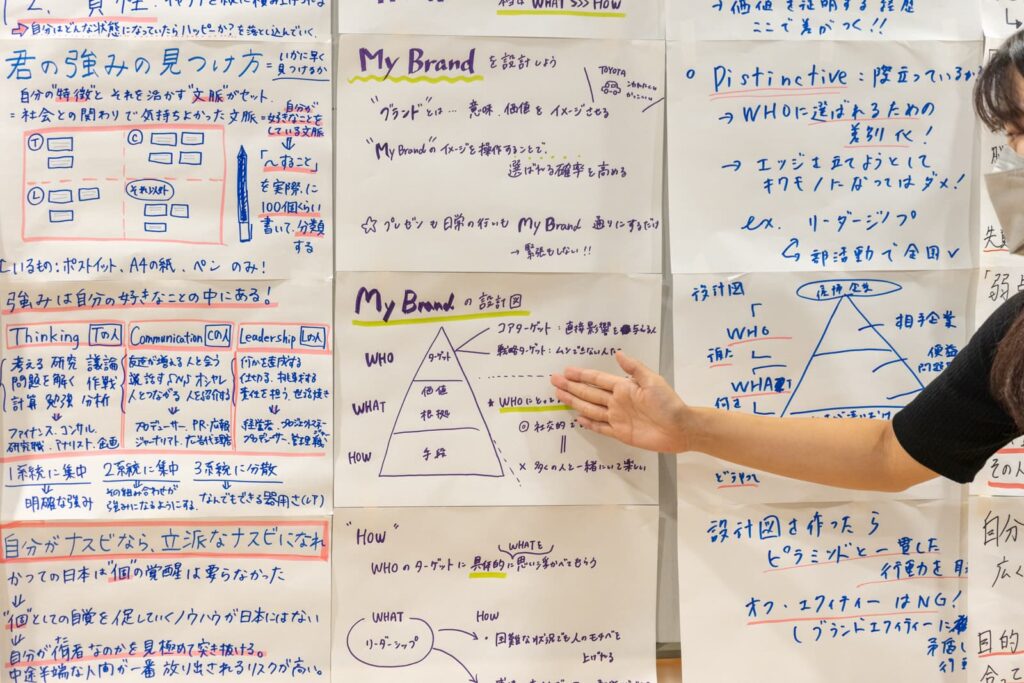 自分はどんな状態になっていたらハッピーか?を落とし込んでいく。
君の強みの見つけ方
=いかに早く
見つけるか
自分の"特徴"とそれを活かす"文脈"がセット.
=社会との関わりで気持ちよかった文脈
=自分が
好きなことを
している文脈
T
C
L
それ以外
「〜すること」
を実際に
100個くらい
書いて、分類
する
ポストイット、A4の紙、ペン のみ!
強みは自分の好きなことの中にある!
Thinking Tの人
考える 研究 議論
問題を解く 作戦
計算 勉強 分析
ファイナンス、コンサル、
研究職、アナリスト、企画
Communication Cの人
友達が増える 人と会う
話す SNS オシャレ
人とつながる
プロデューサー、PR・広報
ジャーナリスト、広告代理店
Leadership Lの人
何かを達成する
1系統に集中
明確な強み
2系統に集中
その組み合わせが
強みになるようにする。
3系統に分散
なんでもできる器用さ
自分がナスビなら、立派なナスビになれ
かつての日本は"個"の覚醒は要らなかった
"個"としての自覚を促していくノウハウが日本にはない
自分が何者なのかを見極めて突き抜ける。
中途半端な人間が一番放り出されるリスクが高い。
WHAT >>> HOW
My Brand を設計しよう
TOYOTA
"ブランド"とは… 意味、価値を イメージさせる
"My Brand"のイメージを操作することで、
選ばれる確率を高める
☆ プレゼンも日常の行いも My Brand 通りにするだけ
→ 緊張もしない!!
My Brand の設計図
WHO
WHAT
HOW
ターゲット
価値
根拠
手段
コアターゲット:直接影響を
戦略ターゲット:
WHOにとっ
社交的で
× 多くの人と一緒にいて楽しい
"HOW"
WHATを
WHOのターゲットに具体的に思い浮かべてもらう
WHAT
リーダーシップ
HOW
・困難な状況でも人のモチベを
上げれる
→価値を証明する経歴
ここで差がつく!!
Distinctive:際立っているか
→ WHOに選ばれるための
差別化!
→ エッジを立てようとして
キワモノになってはダメ!
ex. リーダーシップ
部活動で全国
設計図
WHO
WHAT
何を
どうやって
相手企業
設計図を作ったら
ピラミッドと一貫した
行動を
オフ・エクイティーはNG!
(ブランドエクイティーに
矛盾し
「弱点
その人
自分
広く
目的
合って